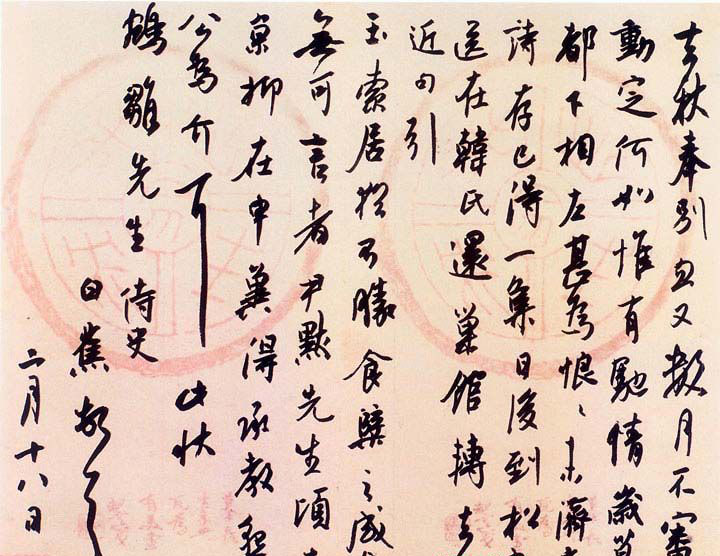 去秋奉別忽又数月不審
動定何如惟有馳情歲
都下相左甚為恨〻未濟
詩存已得一集日後到松
送在韓氏還巢館轉去
近句引
玉索居撥不勝食櫱之感
無可言者尹默先生頃
京抑在申冀得承教
公為介
此狀
鵷雛先生侍史
白蕉
二月十八日